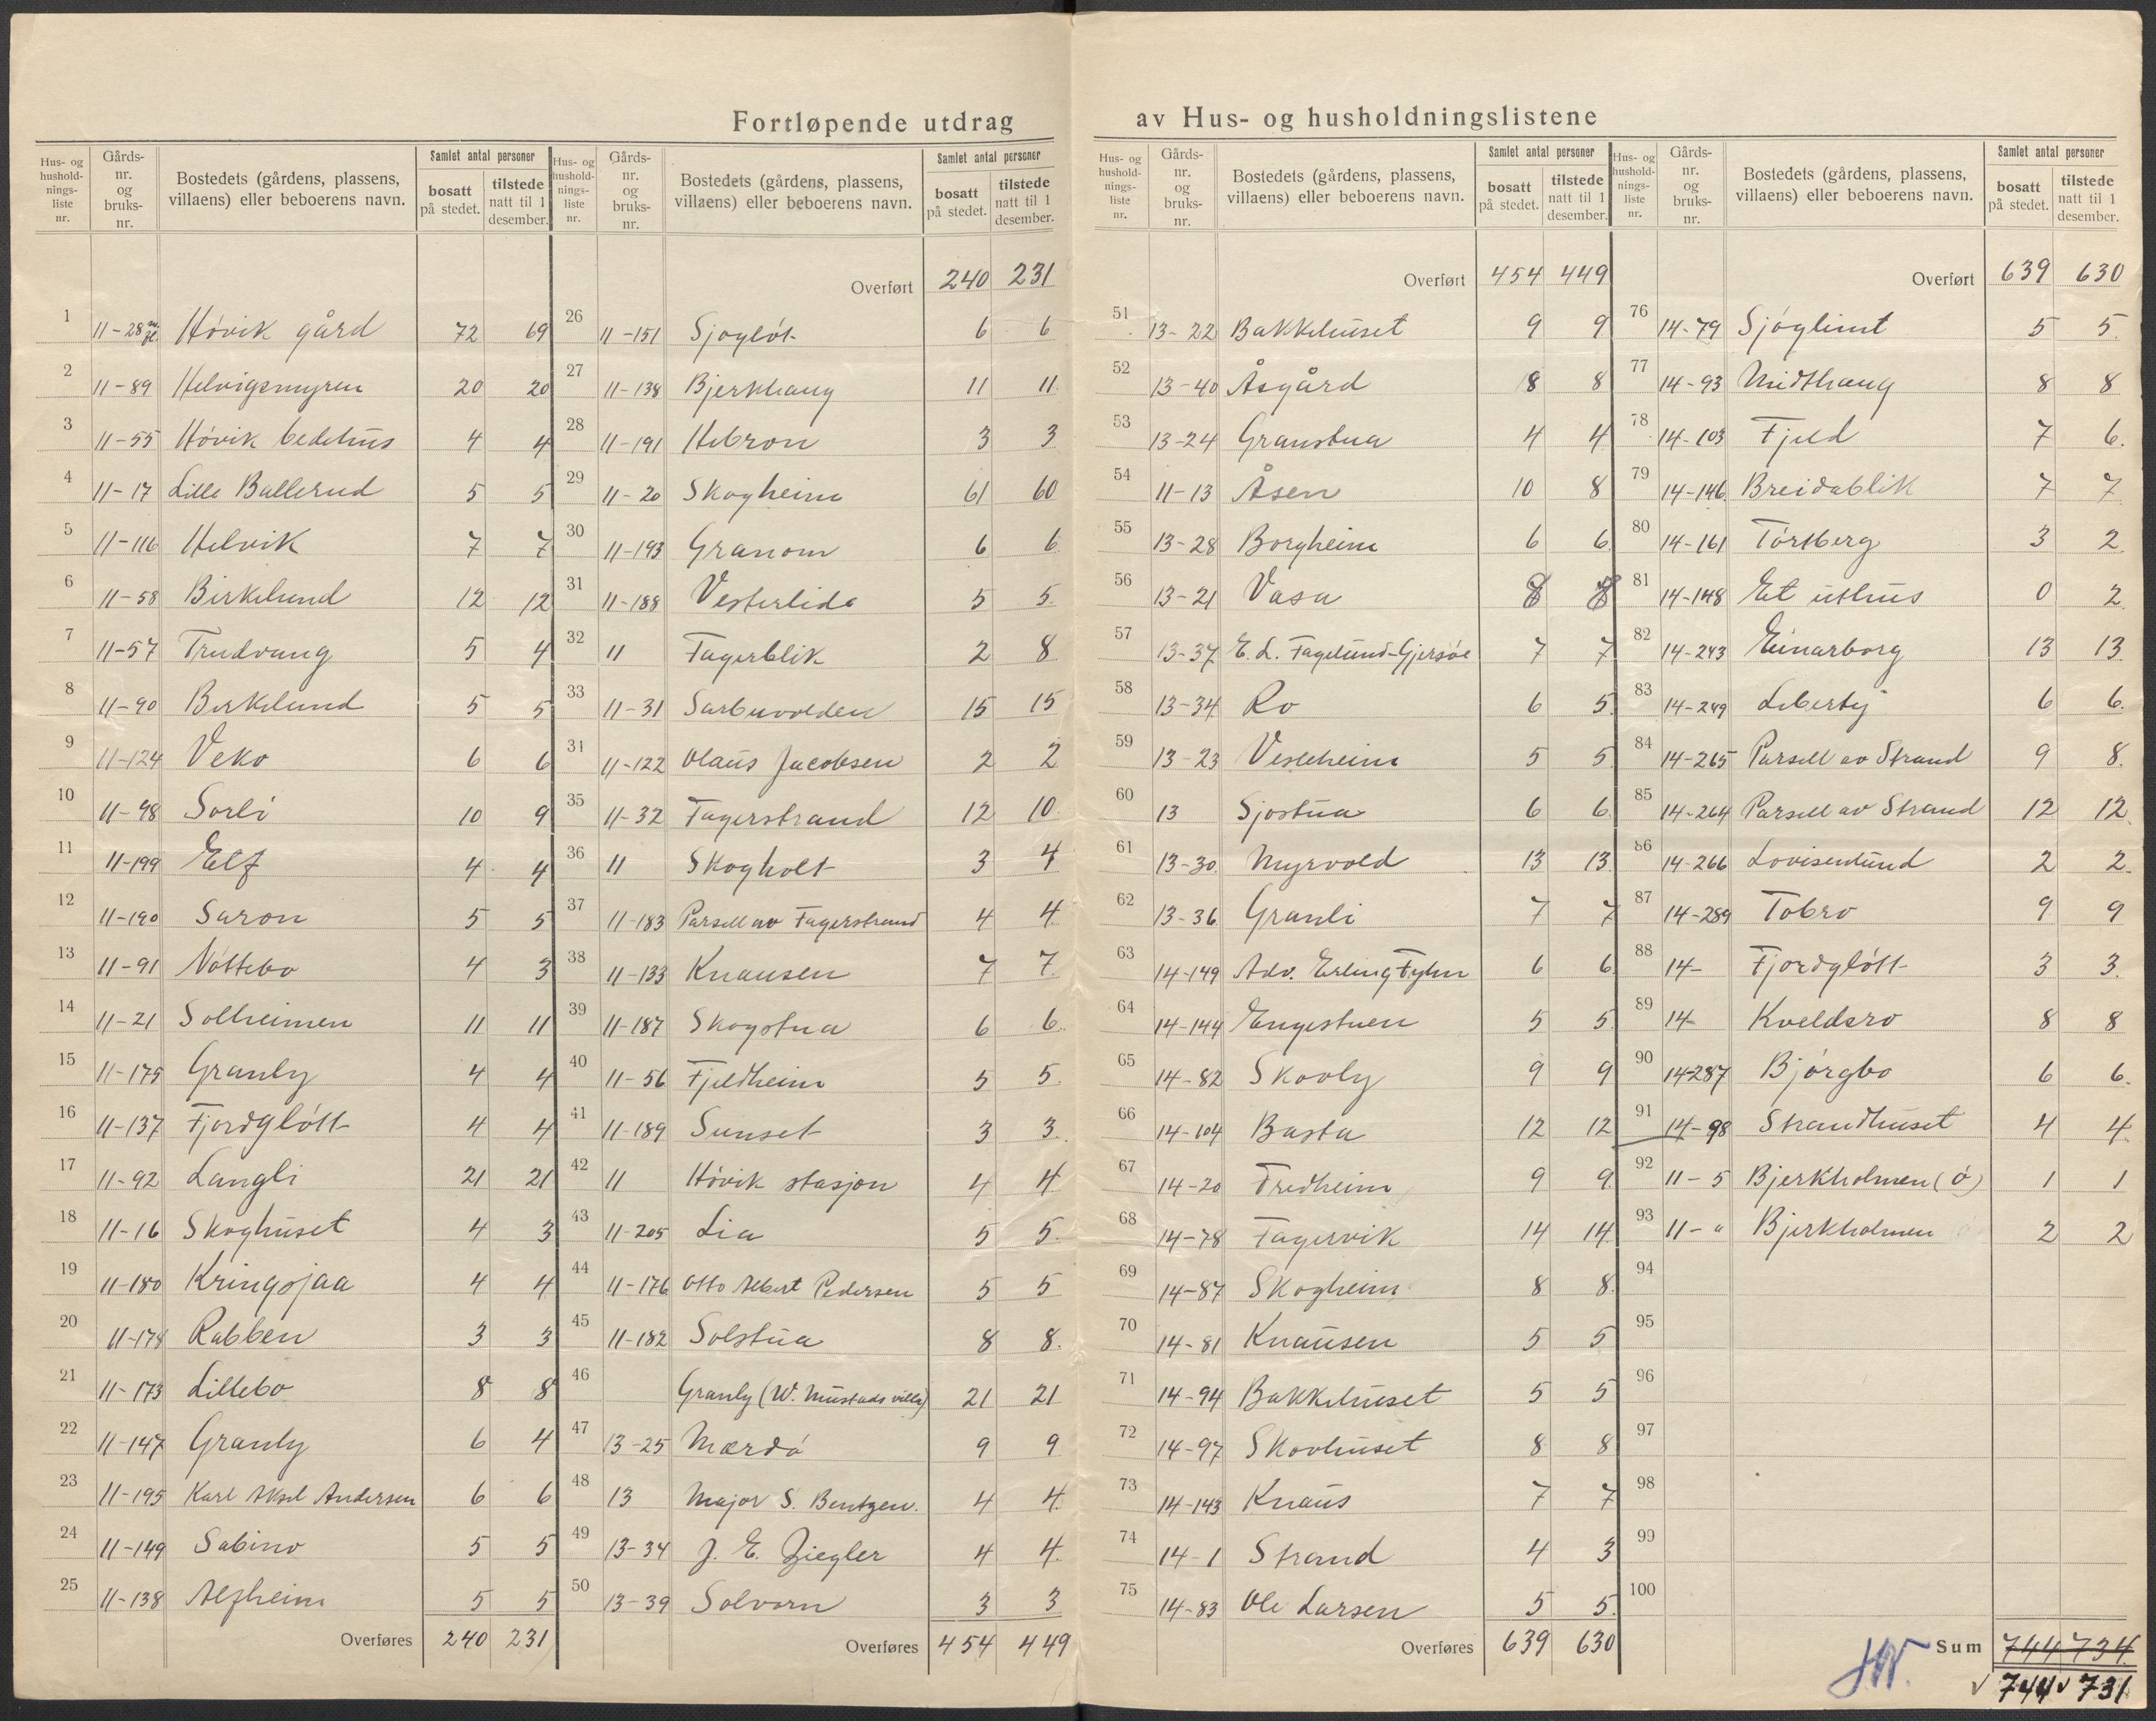 Fortløpende utdrag av Hus- og husholdningslistene
Hus- og hushold-nings-liste nr. Gårds-nr. og bruks-nr. Bostedets (gårdens, plassens, villaens) eller beboerens navn. Samlet antal personer bosatt på stedet. tilstede natt til 1 desember.
1 11-28 m.fl. Høvik gård 72 69
2 11-89 Helvigsmyren 20 20
3 11-55 Høvik bedehus 4 4
4 11-17 Lille Ballerud 5 5
5 11-116 Helvik 7 7
6 11-58 Birkelund 12 12
7 11-57 Trudvang 5 4
8 11-90 Birkelund 5 5
9 11-124 Veko 6 6
10 11-98 Sorli 10 9
11 11-199 Elf 4 4
12 11-190 Saron 5 5
13 11-91 Nøttebo 4 3
14 11-21 Solheimen 11 11
15 11-175 Granly 4 4
16 11-137 Fjordgløtt 4 4
17 11-92 Langli 21 21
18 11-16 Skoghuset 4 3
19 11-180 Kringsjaa 4 4
20 11-178 Rabben 3 3
21 11-173 Lillebo 8 8
22 11-147 Granly 6 4
23 11-195 Karl Aksel Andersen 6 6
24 11-149 Sabino 5 5
25 11-138 Alfheim 5 5
Overføres 240 231
Hus- og hushold-nings-liste nr. Gårds-nr. og bruks-nr. Bostedets (gårdens, plassens, villaens) eller beboerens navn. Samlet antal personer bosatt på stedet. tilstede natt til 1 desember.
Overført 240 231
26 11-151 Sjogløt 6 6
27 11-138 Bjerkhaug 11 11
28 11-191 Hebron 3 3
29 11-20 Skogheim 61 60
30 11-193 Granom 6 6
31 11-188 Vesterlide 5 5
32 11 Fagerblik 2 8
33 11-31 Sarbuvolden 15 15
34 11-122 Olaus Jacobsen 2 2
35 11-32 Fagerstrand 12 10
36 11 Skogholt 3 4
37 11-183 Parsell av Fagerstrand 4 4
38 11-133 Knausen 7 7
39 11-187 Skogstua 6 6
40 11-56 Fjeldheim 5 5
41 11-189 Sunset 3 3
42 11 Høvik stasjon 4 4
43 11-205 Lia 5 5
44 11-176 Otto Albert Pedersen 5 5
45 11-182 Solstua 8 8
46 Granly (W. Mustads villa) 21 21
47 13-25 Mærdø 9 9
48 13 Major S. Bentzen. 4 4
49 13-34 J. E. Ziegler 4 4
50 13-39 Solvorn 3 3
Overføres 454 449
Hus- og hushold-nings-liste nr. Gårds-nr. og bruks-nr. Bostedets (gårdens, plassens, villaens) eller beboerens navn. Samlet antal personer bosatt på stedet. tilstede natt til 1 desember.
Overført 454 449
51 13-22 Bakkehuset 9 9
52 13-40 Åsgård 8 8
53 13-24 Granstua 4 4
54 11-13 Åsen 10 8
55 13-28 Borgheim 6 6
56 13-21 Vasa 8 8
57 13-37 E. L. Fagelund-Gjersøe 7 7
58 13-34 Ro 6 5
59 13-23 Vesleheim 5 5
60 13 Sjostua 6 6
61 13-30 Myrvold 13 13
62 13-36 Granli 7 7
63 14-149 Adv. Erling Fyhn 6 6
64 14-144 Engestuen 5 5
65 14-82 Skovly 9 9
66 14-104 Basta 12 12
67 14-20 Fredheim 9 9
68 14-78 Fagervik 14 14
69 14-87 Skogheim 8 8
70 14-81 Knausen 5 5
71 14-94 Bakkehuset 5 5
72 14-97 Skovhuset 8 8
73 14-143 Knaus 7 7
74 14-1 Strand 4 3
75 14-83 Ole Larsen 5 5
Overføres 639 630
Hus- og hushold-nings-liste nr. Gårds-nr. og bruks-nr. Bostedets (gårdens, plassens, villaens) eller beboerens navn. Samlet antal personer bosatt på stedet. tilstede natt til 1 desember.
Overført 639 630
76 14-79 Sjøglimt 5 5
77 14-93 Midthaug 8 8
78 14-103 Fjeld 7 6
79 14-146 Breidablik 7 7
80 14-161 Torsberg 3 2
81 14-148 Et uthus 0 2
82 14-243 Einarborg 13 13
83 14-249 Liberty 6 6
84 14-265 Parsell av Strand 9 8
85 14-264 Parsell av Strand 12 12
86 14-266 Lovisenlund 2 2
87 14-289 Tobro 9 9
88 14- Fjordgløtt 3 3
89 14- Kveldsro 8 8
90 14-287 Bjørgbo 6 6
91 14-98 Strandhuset 4 4
92 11-5 Bjerkholmen (ø) 1 1
93 11-" Bjerkholmen 2 2
94
95
96
97
98
99
100
HN. Sum 744 734
√ 744 √ 731